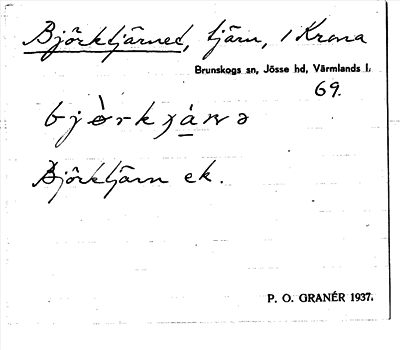 Björktjärnet, tjärn, i Krona
Brunskogs sn, Jösse hd, Värmlands l.
69.
Björktjärn ek.
P. O. GRANÉR 1937.